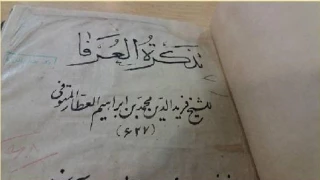 تذكرة العرفا
للشيخ فريد الدين محمد بن ابراهيم العطار المتوفى
(٦٢٧)